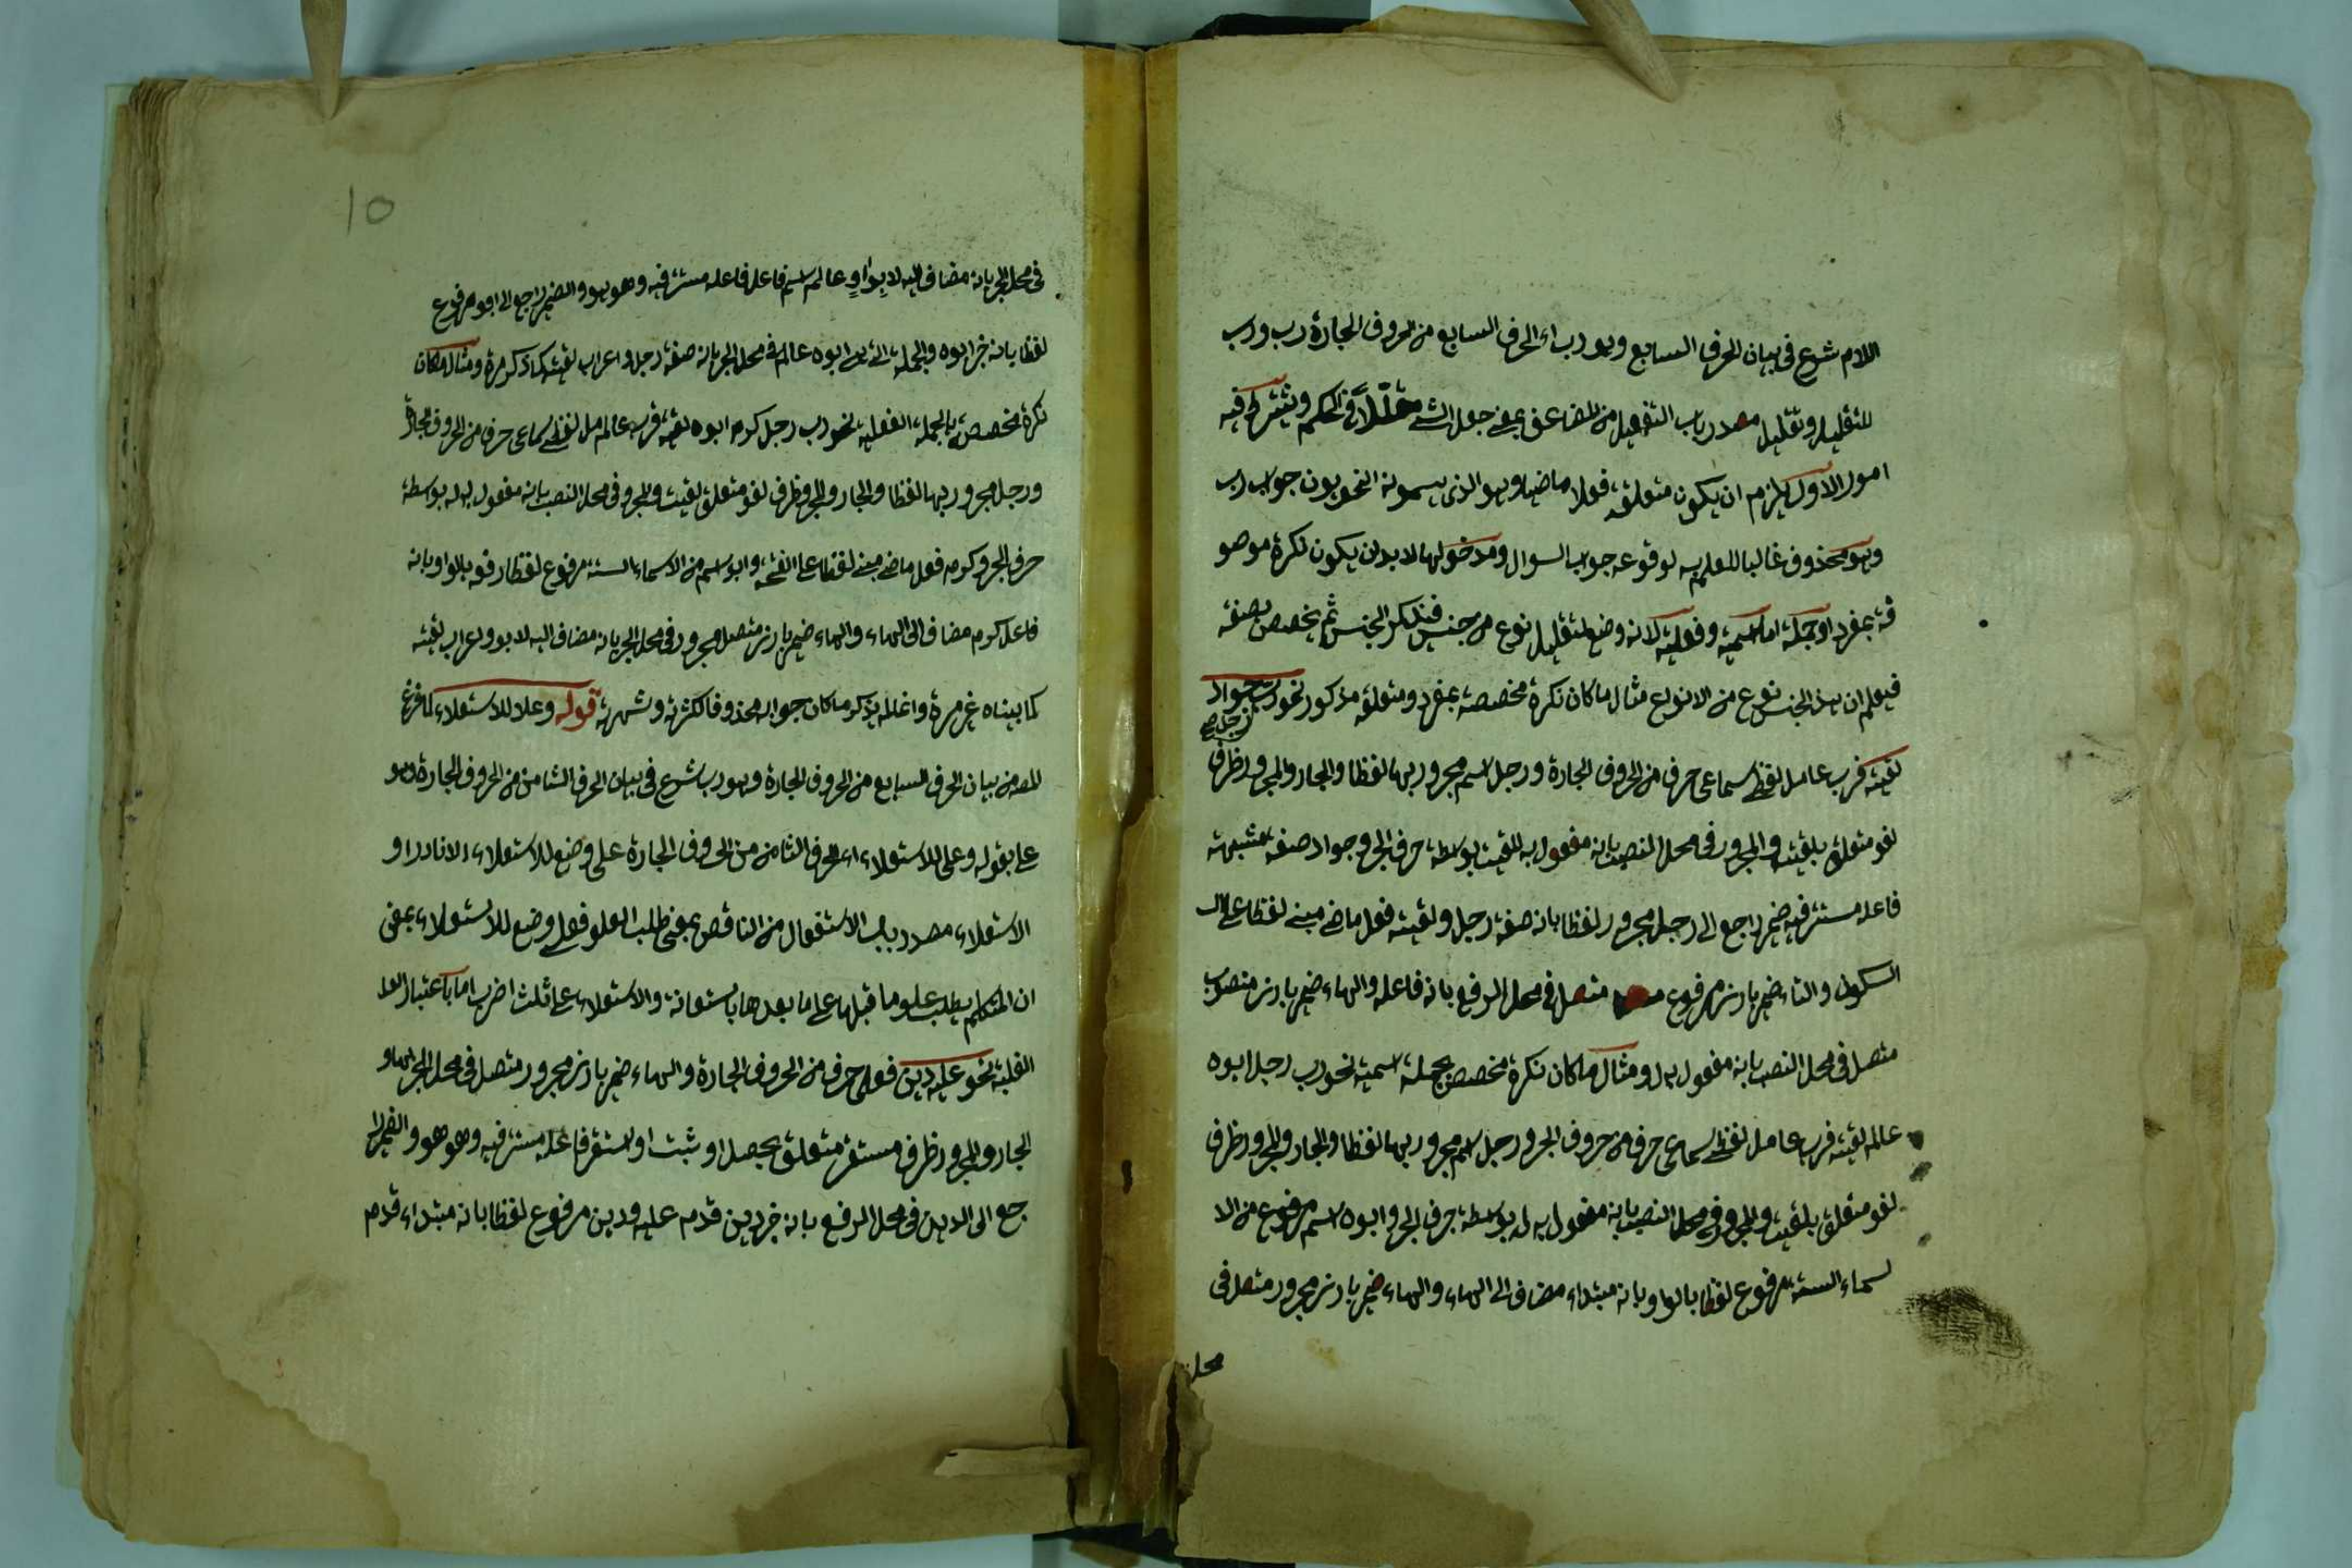 اللام شرع في بيان الحرف السابع وهو رب اء الحرف السابع من الحروف الجارة رب ورب
للتقليل وتقليل مصدر باب التفعيل من المضاعف بمعنى جعل الشئ مقللا في الحكم ويشترط فيه
امور الاول يلزم ان يكون متعلقه فعلا ماضيا وهو الذى يسمونه النحويون جواب رب
وهو محذوف غالبا للعلم به لوقوعه جواب السوال ومدخولها لا بد ان يكون نكرة موصو
فة بمفرد او جملة اما اسمية وفعلية لانه وضع لتقليل نوع من جنس فتذكر الجنس ثم يخصص بصفة
فيعلم ان هذا الجنس نوع من الانواع مثال ما كان نكرة مخصصة بمفرد ومتعلقه مذكور نحو رب جواد
رجل
لقيته فرب عامل لفظي سماعي حرف من الحروف الجارة ورجل اسم مجرور بها لفظا والجار والمجرور ظرف
لغو متعلق بلقيت والمجرور في محل النصب بانه مفعول به للقيت بوسطة حرف الجر وجواد صفة مشبهة
فاعله مستتر فيه ضمير راجع الى رجل مجرور لفظا بانه صفة رجل ولقيته فعل ماضي مبني لفظا على ال
السكون والتاء ضمير بارز مرفوع متصل في محل الرفع بانه فاعله والهاء ضمير بارز منصوب
متصل في محل النصب بانه مفعول به له ومثال ما كان نكرة مخصص بجملة اسمية نحو رب رجل ابوه
عالم لقيته فرب عامل لفظي سماعي حرف من حروف الجر ورجل اسم مجرور بها لفظا والجار والمجرور ظرف
لغو متعلق بلقيت والمجرور في محل النصب بانه مفعول به له بوسطة حرف الجر وابوه اسم مرفوع من الا
لسماء الستة مرفوع لفظا بالواو بانه مبتداء مضاف الى الهاء والهاء ضمير بارز مجرور متصل في
محل
10
في محل الجر بانه مضاف اليه لابو عالم اسم فاعل فاعله مستتر فيه وهو هو والضمير راجع الى ابو مرفوع
لفظا بانه خبر ابوه والجملة ابوه عالم في محل الجر بانه صفة رجل واعراب لقيته كما ذكر مرة ومثال ما كان
نكرة مخصصة بالجملة الفعلية نحو رب رجل كرم ابوه لقيته فرب عامل لفظي سماعي حرف من الحروف الجارة
ورجل مجرور بها لفظا والجار والمجرور ظرف لغو متعلق لقيت والمجرور في محل النصب بانه مفعول به له بوسطة
حرف الجر وكرم فعل ماضي مبني لفظا على الفتحة وابو اسم من الاسماء الستة مرفوع لفظا رفعه بالواو بانه
فاعل كرم مضاف الى الهاء والهاء ضمير بارز متصل مجرور في محل الجر بانه مضاف اليه لابو واعراب لقيته
كما بيناه غير مرة وانما لم يذكر ما كان جوابه محذوفا لكثرته وشهرته قوله وعلا للاستعلاء لما فرغ
المص من بيان الحرف السابع من الحروف الجارة وهو رب شرع في بيان الحرف الثامن من الحروف الجارة وهو
على بقوله وعلى للاستعلاء اء الحرف الثامن من الحروف الجارة على وضع للاستعلاء الا نادرا و
الاستعلاء مصدر باب الاستفعال من الناقص بمعنى طلب العلو فعلى وضع للاستعلاء بمعنى
ان المتكلم يطلب علو ما قبلها على ما بعدها باستعانة والاستعلاء على ثلث اضرب اما باعتبار العلا
الغلبة نحو عليه دين فعلى حرف من الحروف الجارة والهاء ضمير بارز مجرور متصل في محل الجر بها و
الجار والمجرور ظرف مستقر متعلق بحصل او ثبت او استقر فاعله مستتر فيه وهو هو والضمير را
جع الى الدين في محل الرفع بانه خبر دين قدم عليه ودين مرفوع لفظا بانه مبتداء قدم